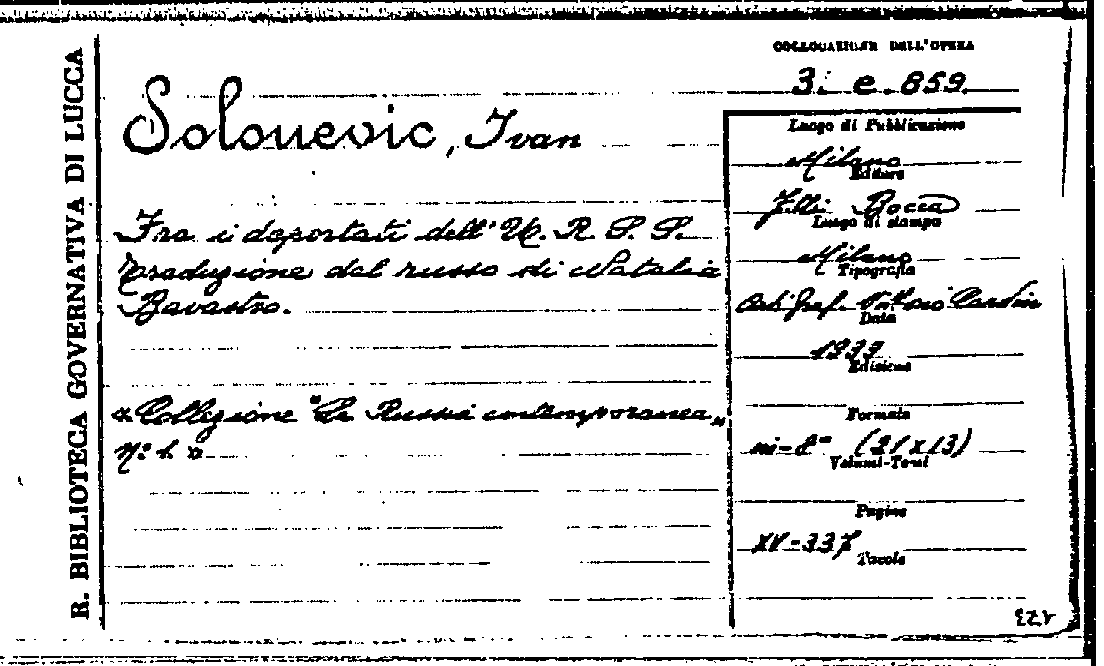 R. BIBLIOTECA GOVERNATIVA DI LUCCA
COLLOCAZIONE DELL'OPERA
3. e. 859.
Solouevic, Ivan
Fra i deportati dell' U. R. S. S.
Traduzione dal russo di Natalia
Bavastro.
« Collezione "La Russia contemporanea„
Nº 1. »
Luogo di Pubblicazione
Milano
Editore
F.lli Bocca
Luogo di stampa
Milano
Tipografia
Arti Graf. Vittorio
Data
1939
Edizione
Formato
in-8º (21x13)
Volumi-Tomi
Pagine
XV-337
Tavole